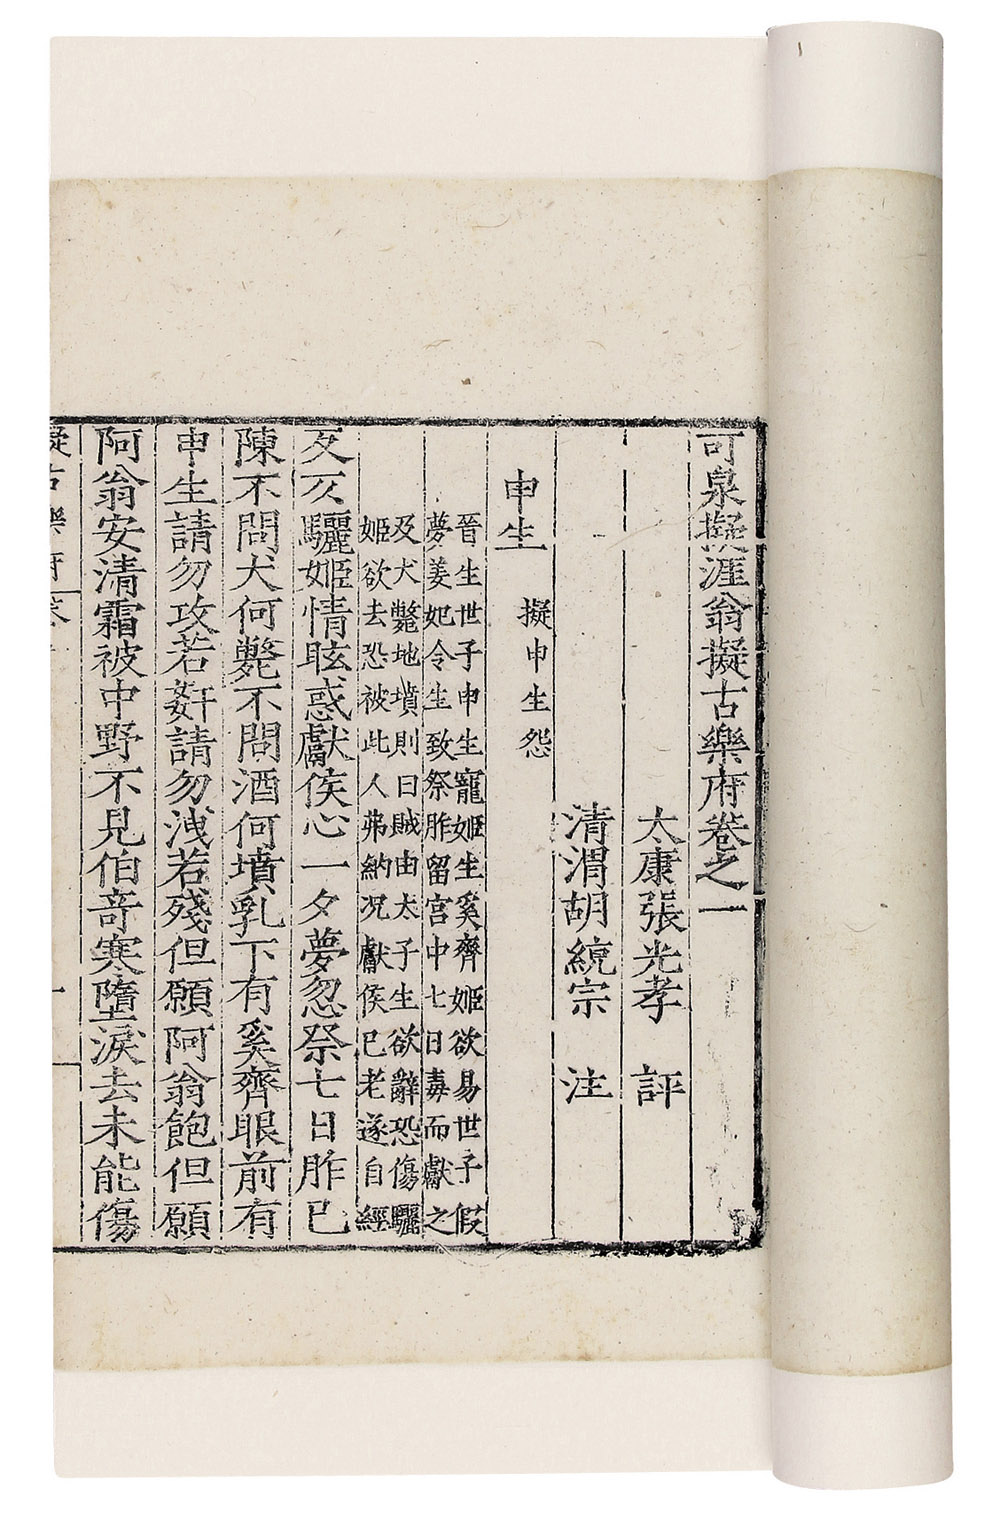 可泉擬涯翁擬古樂府卷之一
太康張光孝 評
清渭胡統宗 注
申生 擬申生怨
晉生世子申生寵姬生奚齊姬欲易世子假
夢姜妃令生致祭胙留宮中七日毒而獻之
及犬斃地墳則曰賊由太子生欲辭恐傷驪
姬欲去恐被此人弗納况獻侯已老遂自經
驪姬情眩惑獻侯心一夕夢忽祭七日胙已
陳不問犬何斃不問酒何墳乳下有奚齊眼前有
申生請勿攻若姧請勿洩若殘但願阿翁飽但願
阿翁安清霜被中野不見伯竒寒墮淚去未能傷
擬古樂府卷